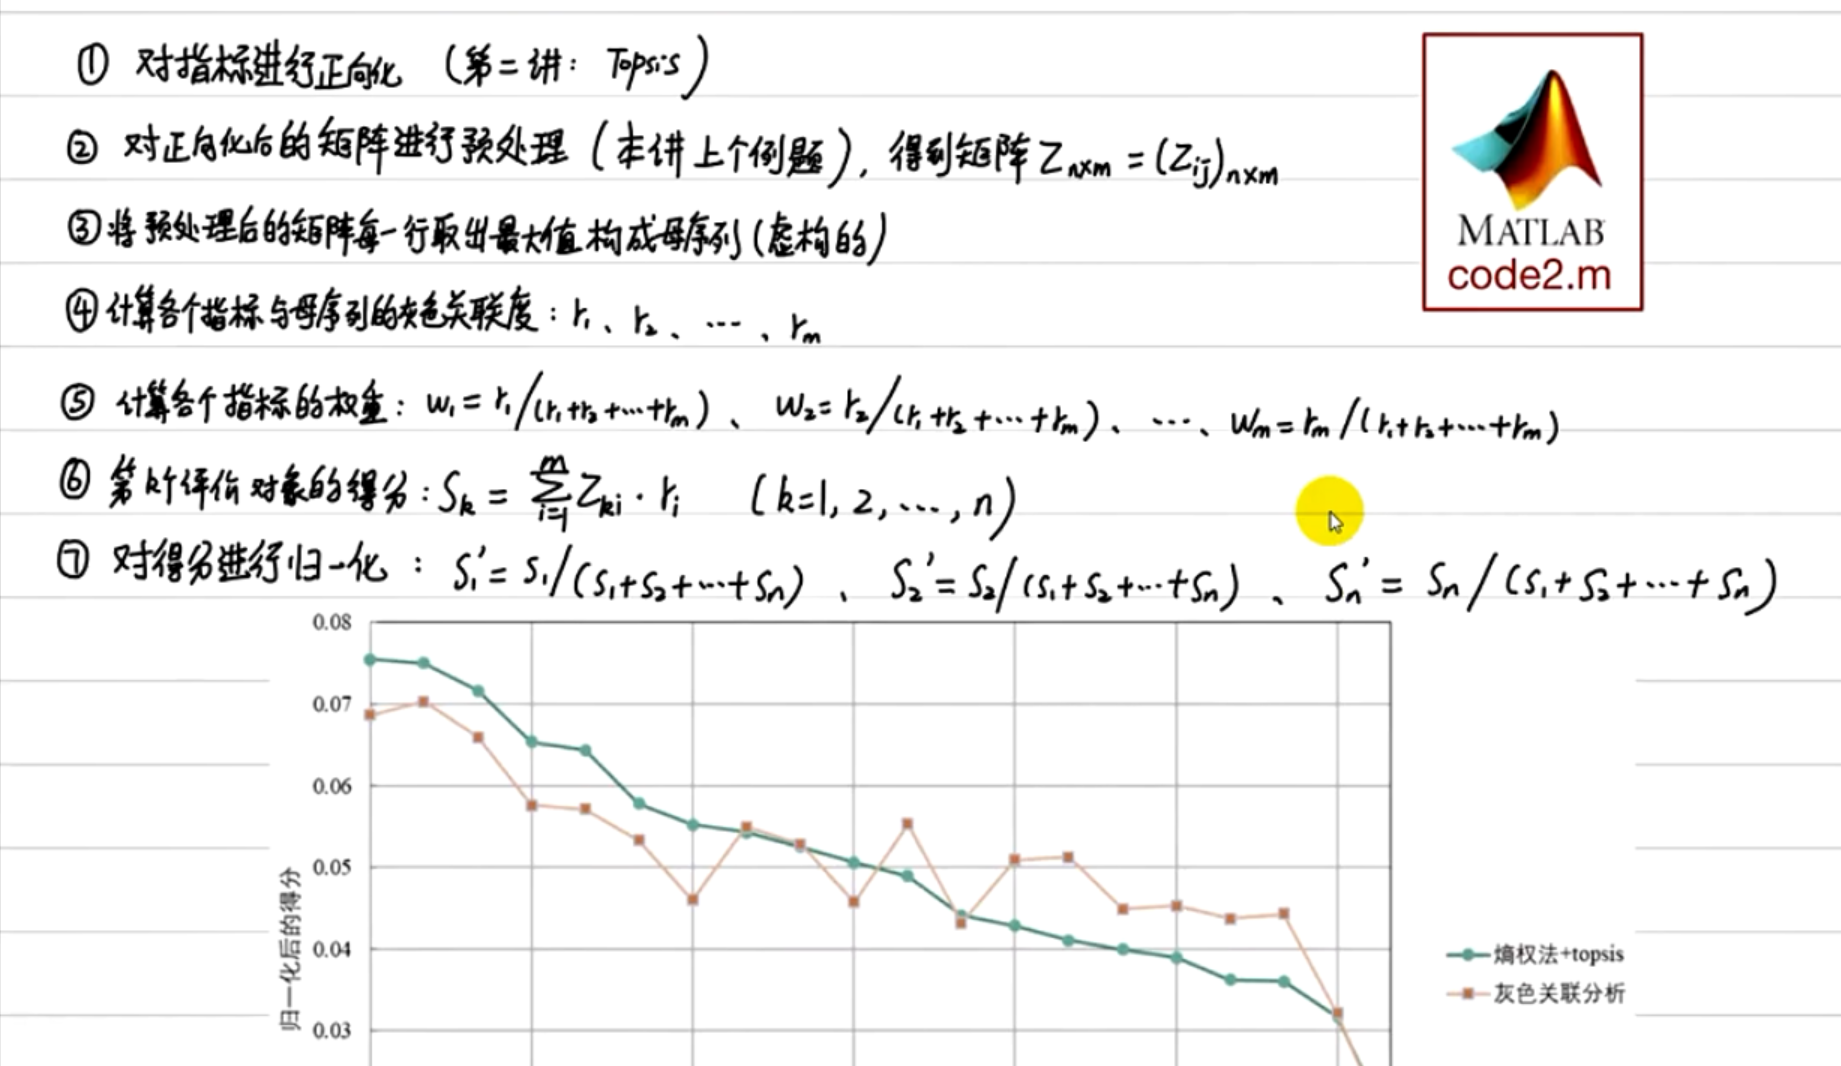 ① 对指标进行正向化 (第二讲: Topsis)
② 对正向化后的矩阵进行预处理 (本讲上个例题), 得到矩阵 Zn×m = (Zij)n×m
③ 将预处理后的矩阵每一行取出最大值构成母序列 (虚构的)
④ 计算各个指标与母序列的灰色关联度: r₁、r₂、…、rm
⑤ 计算各个指标的权重: w₁ = r₁/(r₁+r₂+…+rm)、 w₂ = r₂/(r₁+r₂+…+rm)、 …、 wm = rm/(r₁+r₂+…+rm)
⑥ 第k个评价对象的得分: Sk = ∑_{i=1}^{m} Zki · ri (k=1, 2, …, n)
⑦ 对得分进行归一化: S₁' = S₁/(S₁+S₂+…+Sn)、 S₂' = S₂/(S₁+S₂+…+Sn)、 Sn' = Sn/(S₁+S₂+…+Sn)
MATLAB
code2.m
0.08
0.07
0.06
0.05
0.04
0.03
归一化后的得分
熵权法+topsis
灰色关联分析